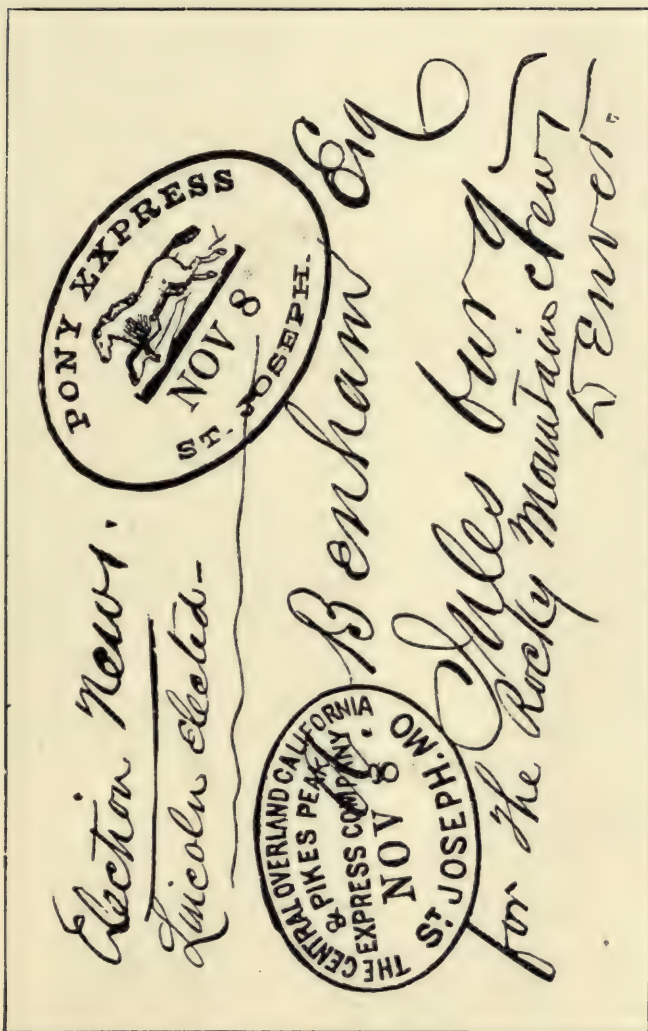 Election News.
Lincoln elected-
PONY EXPRESS
NOV 8
ST. JOSEPH.
THE CENTRAL OVERLAND CALIFORNIA
& PIKES PEAK
EXPRESS COMPANY
NOV 8
ST JOSEPH. MO
Benham Esq
Jules burg
for the Rocky Mountain News
Denver.